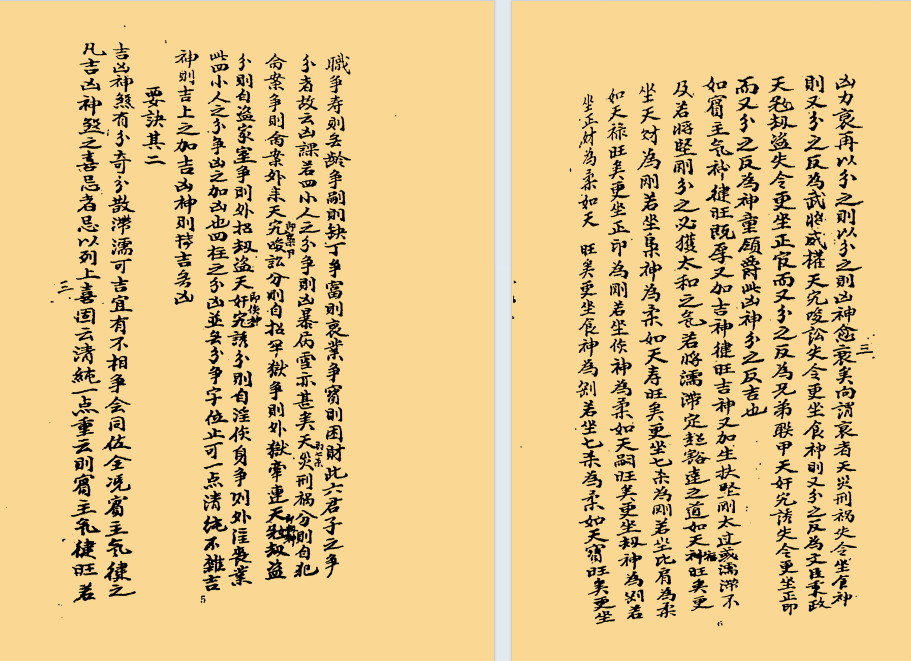 職爭寿則丟齡爭嗣則缺丁爭富則衰業爭寶則困財此六君子之爭
分者故云凶課若四小人之分爭則凶暴病雪亦甚矣天災刑禍分則自犯
命案爭則命案外來天究唆訟分則自招牢獄爭則外獄牽連天尅劫盜
分則自盜家室爭則外招劫盜天奸究誘分則自淫佚身爭則外淫喪業
此四小人之分爭凶之加凶也四柱之分凶並無分爭字位止可一点清純不雜吉
神則吉上之加吉凶神則轉吉無凶
要訣其二
吉凶神煞有分奇分散滯濡可吉宜有不相爭会同佐全凭賓主气健之
凡吉凶神煞之喜忌者忌以列上喜固云清純一点重云則賓主气健旺若
三
5
三
凶力衰再以分之則以分之則凶神愈衰矣向謂衰者天災刑祸失令坐食神
則又分之反為武將威權天究唆訟失令更坐食神則又分之反為文臣秉政
天尅劫盜失令更坐正官而又分之反為兄弟聯甲天奸究誘失令更坐正印
而又分之反為神童領爵此凶神分之反吉也
如賓主气神健旺既厚又加吉神健旺吉神又加生扶堅剛太过或濡滯不
及若將堅剛分之必獲太和之气若將濡滯定起豁達之道如天神旺矣更
坐天財為剛若坐梟神為柔如天寿旺矣更坐七杀為剛若坐比肩為柔
如天禄旺矣更坐正印為剛若坐傷神為柔如天嗣旺矣更坐劫神為剛若
坐正財為柔如天 旺矣更坐食神為剛若坐七杀為柔如天寶旺矣更坐
6